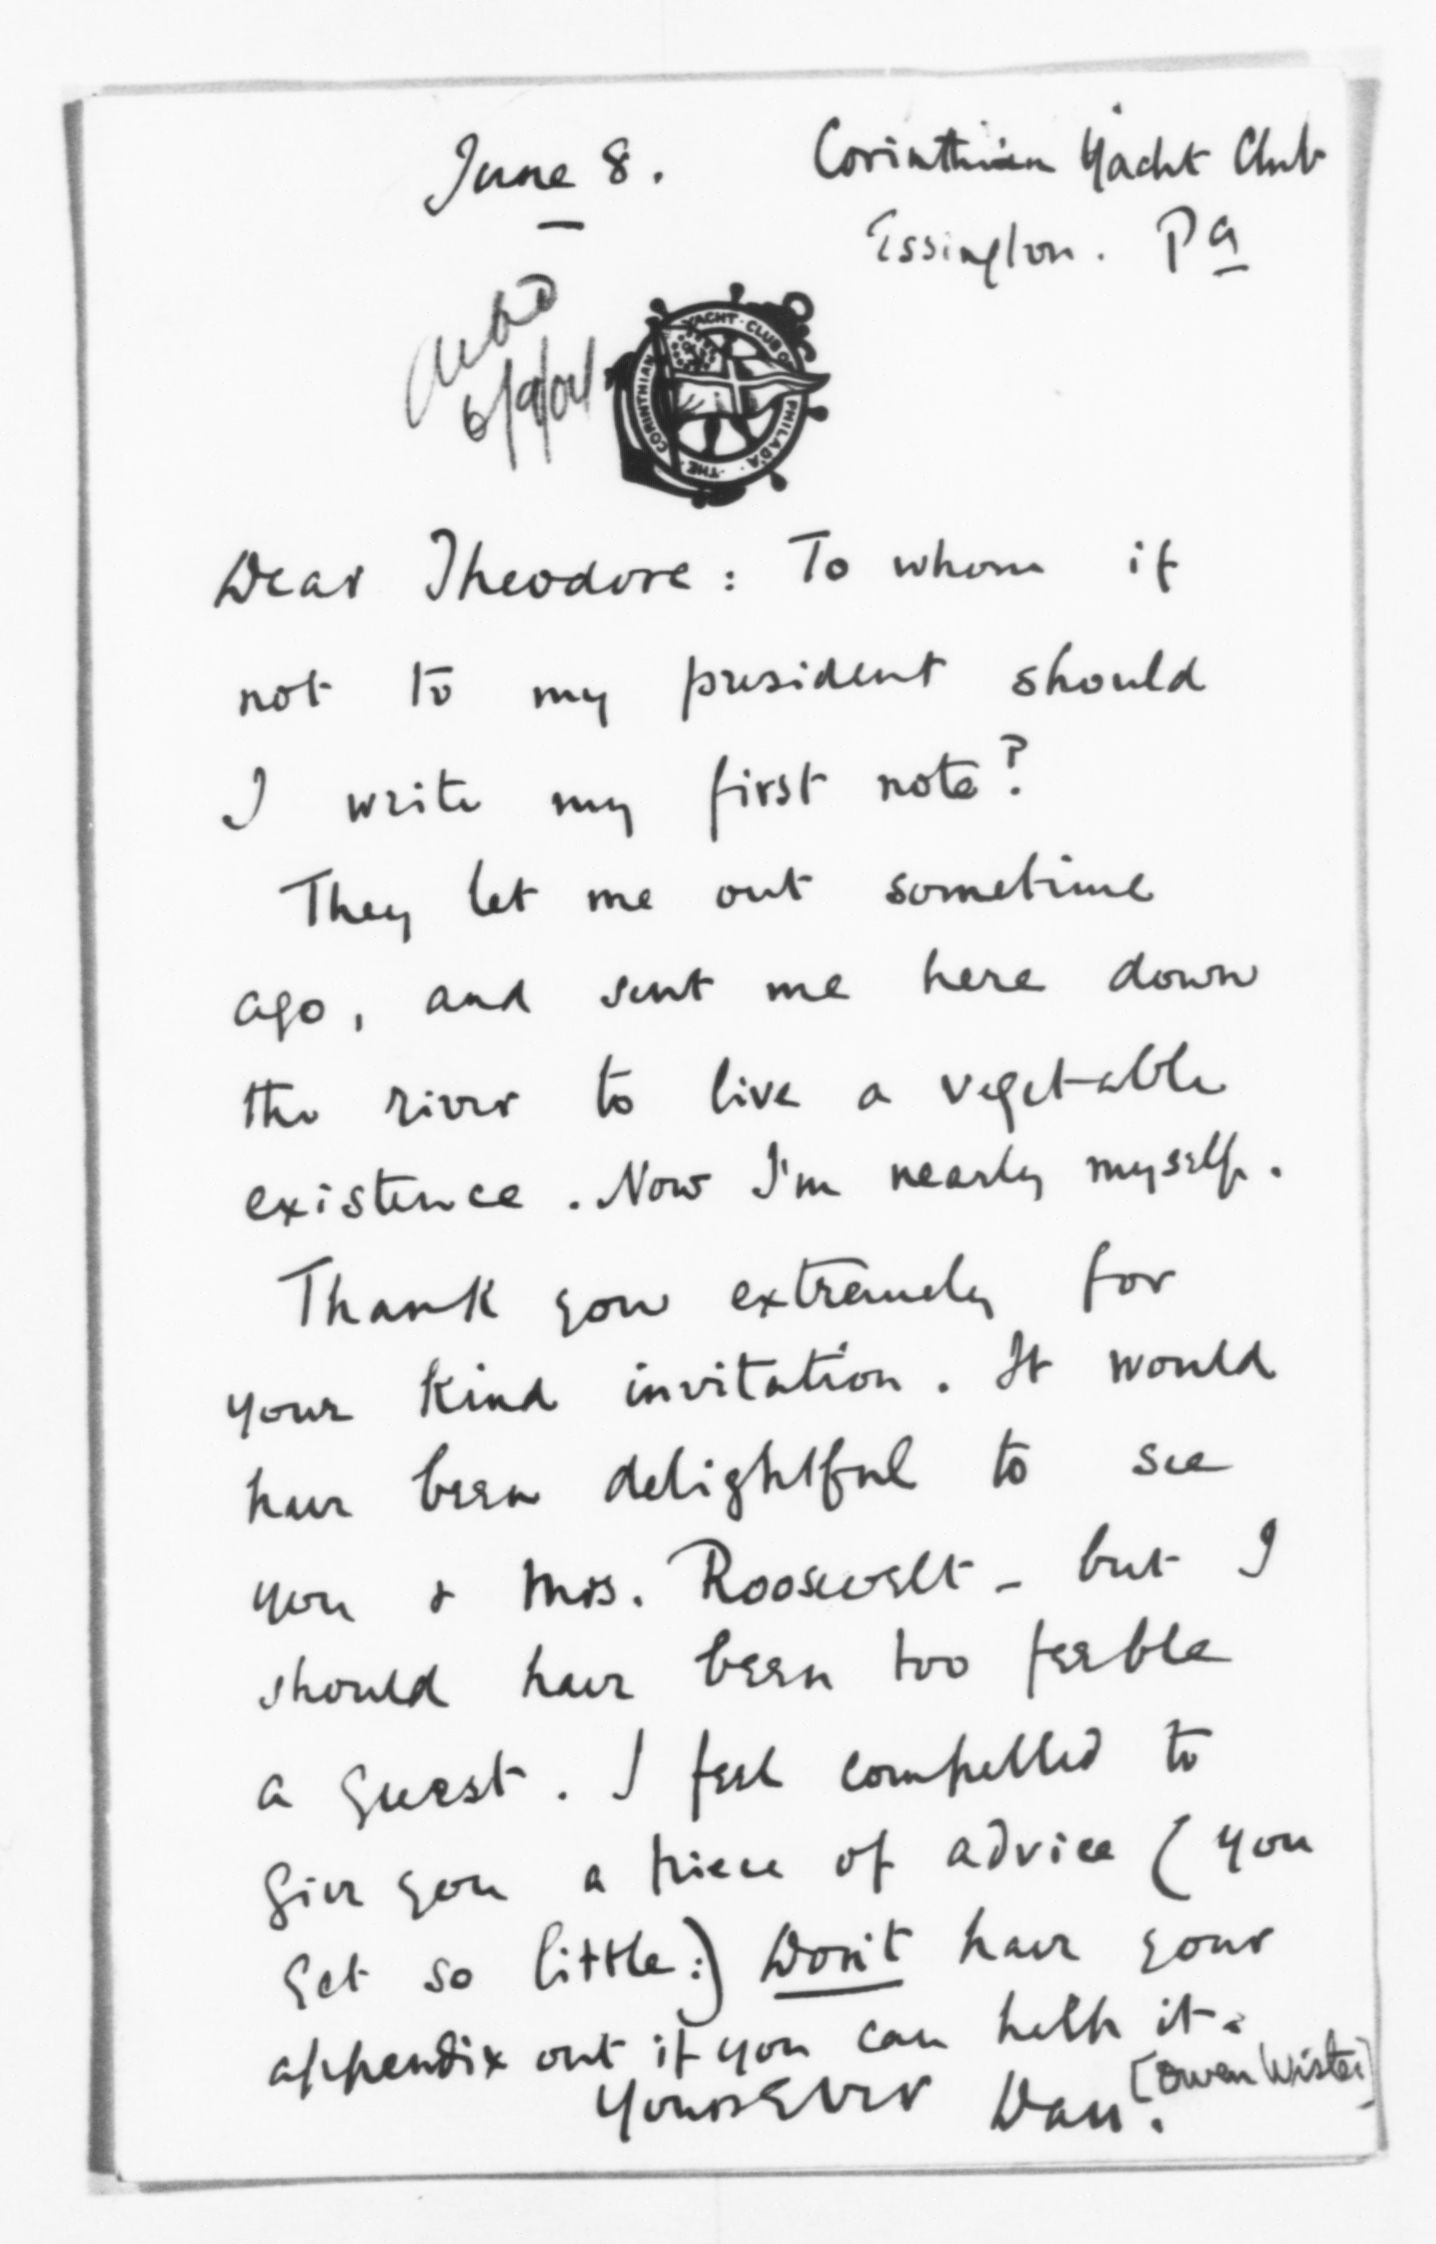 June 8. Corinthian Yacht Club
Essington. Pa
Ackd
6/9/04
THE · CORINTHIAN YACHT · CLUB OF PHILAD'A ·
Dear Theodore: To whom if
not to my president should
I write my first note?
They let me out sometime
ago, and sent me here down
the river to live a vegetable
existence. Now I'm nearly myself.
Thank you extremely for
your kind invitation. It would
have been delightful to see
you & Mrs. Roosevelt – but I
should have been too feeble
a guest. I feel compelled to
give you a piece of advice (you
get so little:) Don't have your
appendix out if you can help it.
Yours Ever Dan.
[Owen Wister]